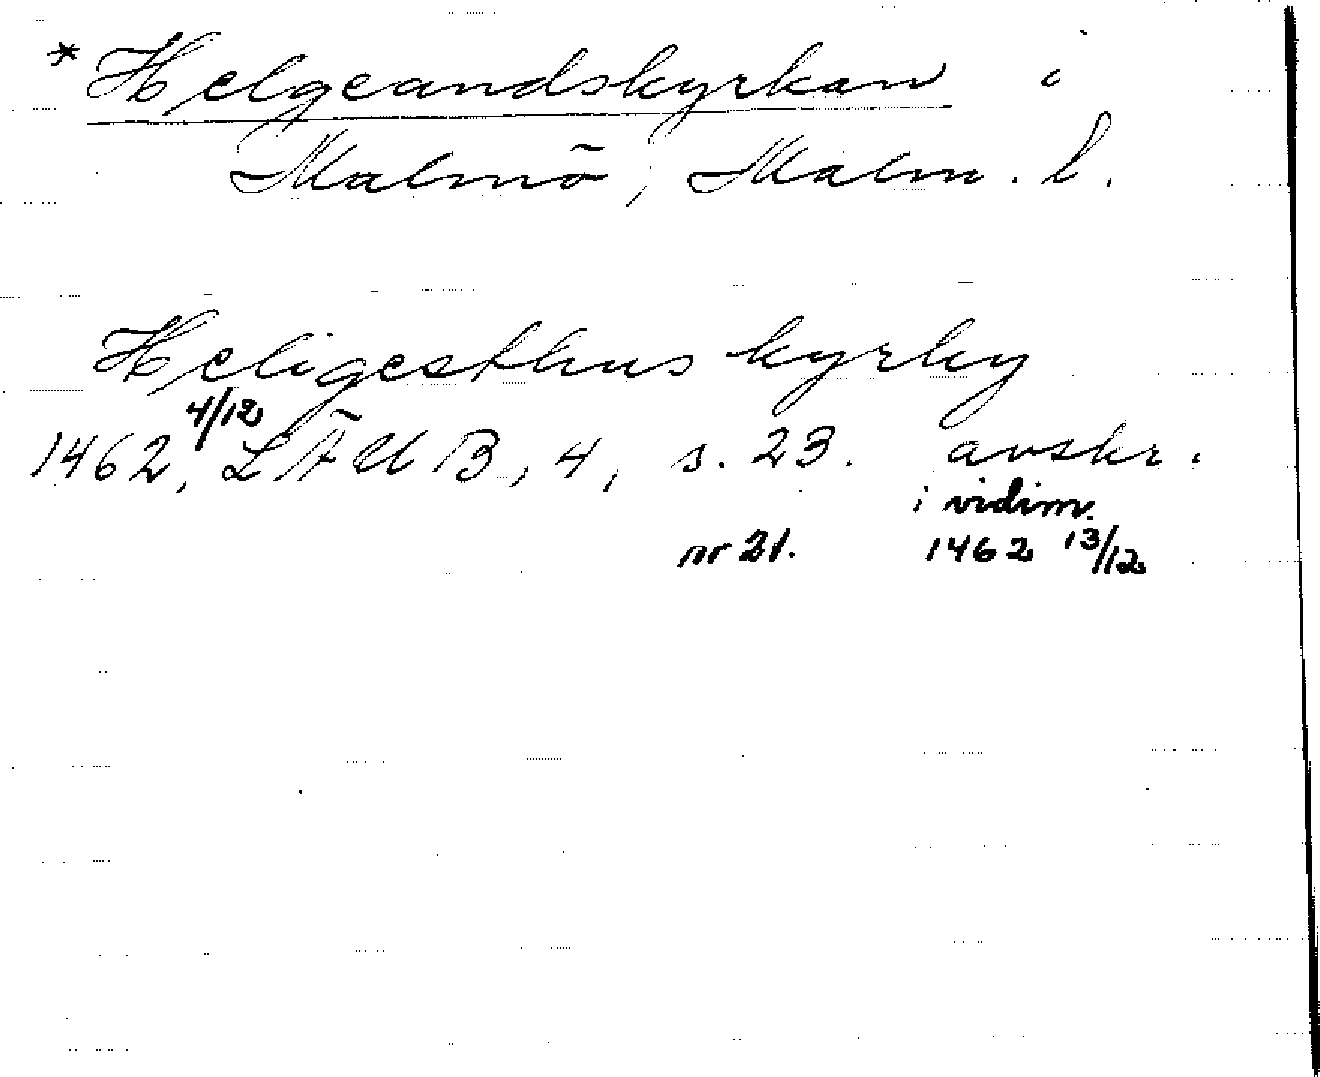 * Helgeandskyrkan i
Malmö, Malm. l.
Heligesthus kyrky
1462 4/12, LÄUB, 4, s. 23. avskr.
i vidim.
nr 21. 1462 13/12